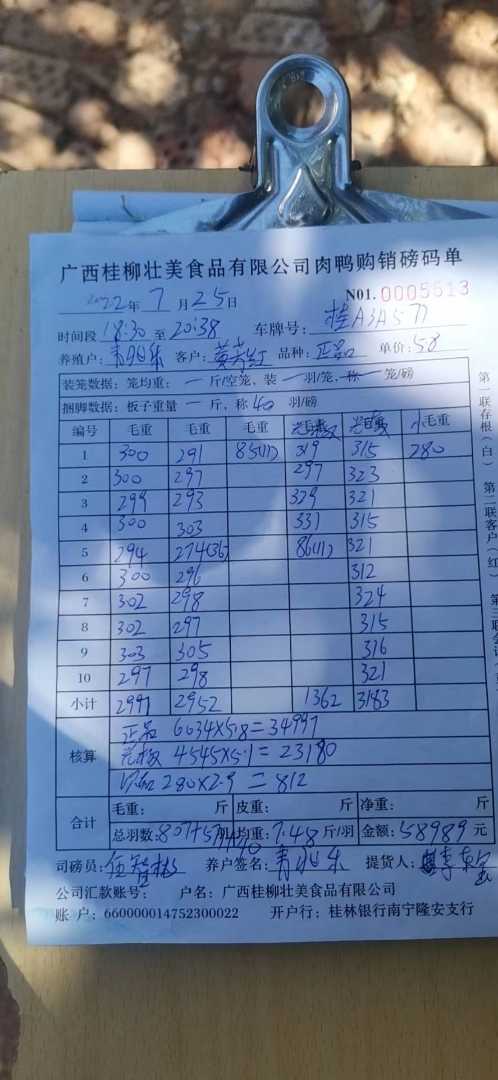 广西桂柳壮美食品有限公司肉鸭购销磅码单
2022年 7 月 25 日 N01. 0005513
时间段 18:30 至 20:38 车牌号: 桂A3A577
养殖户: 客户: 黄 红 品种: 正品 单价: 5.8
装笼数据: 笼均重: 一 斤/空笼、装 一 羽/笼、称一笼/磅
捆脚数据: 板子重量 一 斤, 称 40 羽/磅
编号 毛重 毛重 毛重 毛重 小毛重
1 300 291 85(11) 319 315 280
2 300 297 297 323
3 299 293 329 321
4 300 303 331 315
5 294 274(36) 86(11) 321
6 300 296 312
7 302 298 324
8 302 297 315
9 303 305 316
10 297 298 321
小计 2997 2952 1362 3183
核算 正品 6034×5.8=34997
4545×5.1=23180
280×2.9=812
合计 毛重: 斤 皮重: 斤 净重: 斤
总羽数: 807+ 均重: 7.48 斤/羽 金额: 58989 元
司磅员: 养户签名: 提货人:
公司汇款账号: 户名: 广西桂柳壮美食品有限公司
账 户: 660000014752300022 开户行: 桂林银行南宁隆安支行
第一联存根(白) 第二联客户(红) 第三联